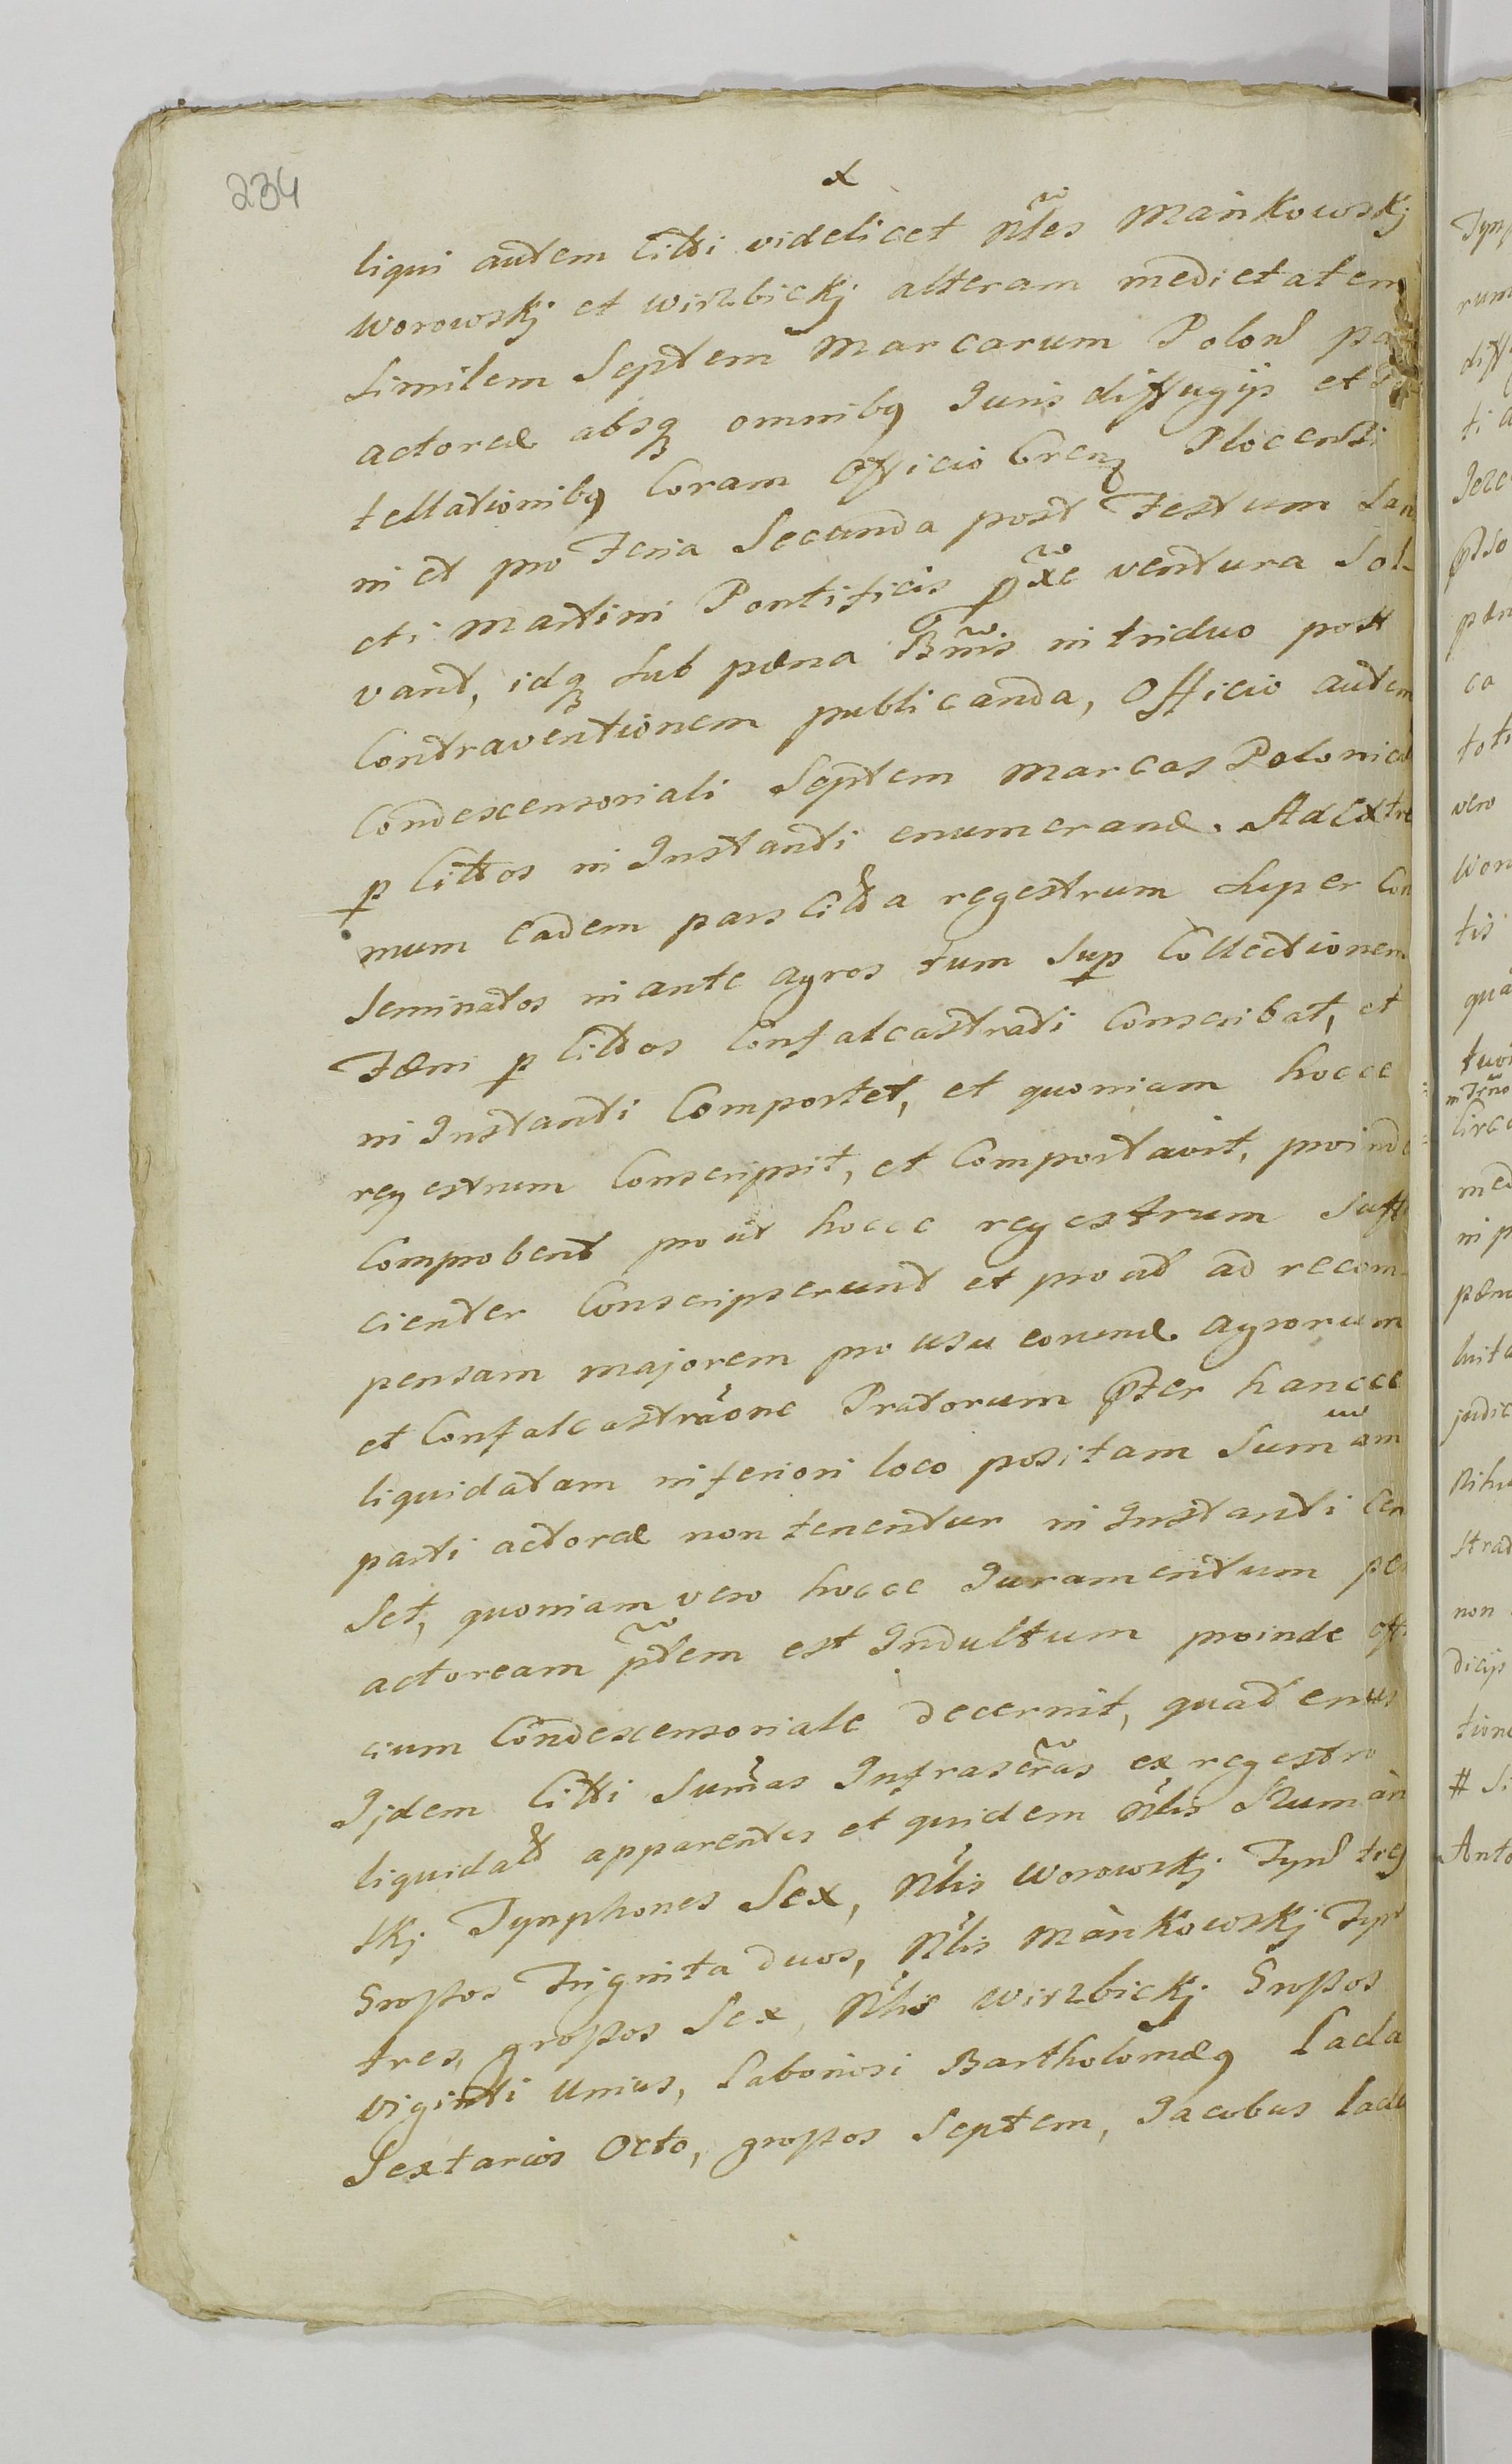 234
x
liqui autem Citti videlicet Nles Mańkowskj
Worowskj et Wirzbickj alteram medietatem
Similem Septem Marcarum Polonl
actoreæ absq omnibq Juris diffugijs et
tellationibq Coram Officio Crenq Plocensi
in et pro Feria Secunda post Festum San
cti Martini Pontificis pxe ventura Sol-
vant, idq Sub pœna Bnis in triduo post
Contraventionem publicanda, Officio autem
Condescensoriali Septem Marcas Polonical
p Cittos in Instanti enumerand. Ad Extre
mum eadem pars Citta regestrum Super Con
Seminatos in ante agros tum Sup Collectionem
Fœni p Cittos Confalcastrati Conscribat, et
in Instanti Comportet, et quoniam hocce
regestrum Conscripsit, et Comportavit, proinde
Comprobent prout hocce regestrum Suffi
cienter Conscripserunt et prout ad recom-
pensam majorem pro usu eorund. agrorum
et Confalcastraõne Pratorum pter hancce
liquidatam inferiori loco positam Sumam
parti actoreæ non tenentur in Instanti Cen
Set, quoniam vero hocce Juramentum per
actoream ptem est Indultum proinde offi
cium Condescensoriale decernit, quatenus
Ijdem Citti Sumas Infrascras ex regestro
liquidatl apparentes et quidem Nlis Szumań
Skj Tynphones Sex, Nlis Worowskj Tynl
Grossos Triginta duos, Nlis Mańkowskj Tynl
tres, grossos Sex, Nlis Wirzbickj Grossos
viginti Unius, Laboriosi Bartholomæq Lada
Sextarios Octo, grossos Septem, Jacobus Lada